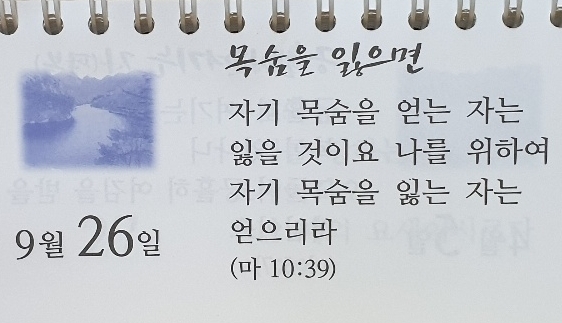 목숨을 잃으면
자기 목숨을 얻는 자는
잃을 것이요 나를 위하여
자기 목숨을 잃는 자는
얻으리라
(마 10:39)
9월 26일